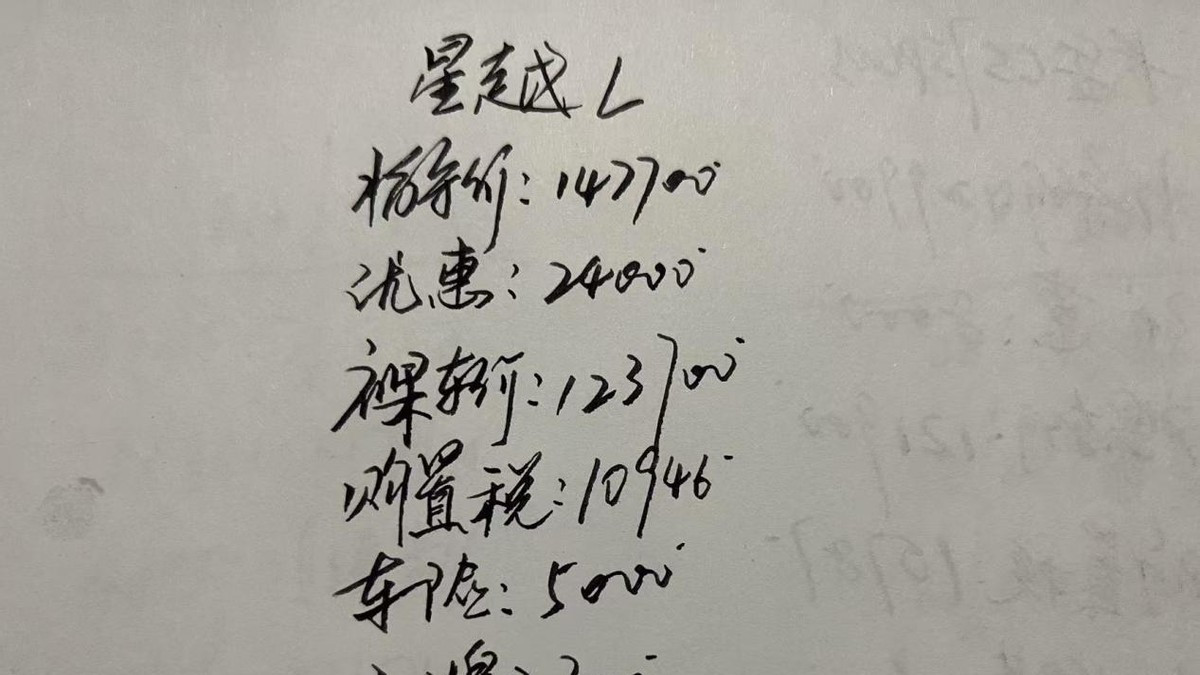 星越L
指导价:147700
优惠:24000
裸车价:123700
购置税:10946
车险:5000